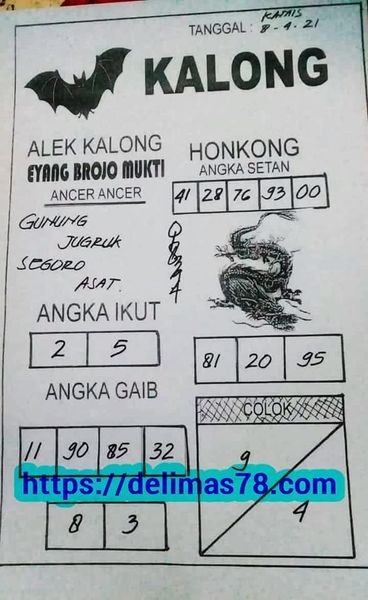 TANGGAL : KAMIS
8-4-21
KALONG
ALEK KALONG
EYANG BROJO MUKTI
ANCER ANCER
GUNUNG
JUGRUK
SEGORO
ASAT.
HONKONG
ANGKA SETAN
41 28 76 93 00
ANGKA IKUT
2 5
81 20 95
ANGKA GAIB
11 90 85 32
8 3
COLOK
9
4
https://delimas78.com